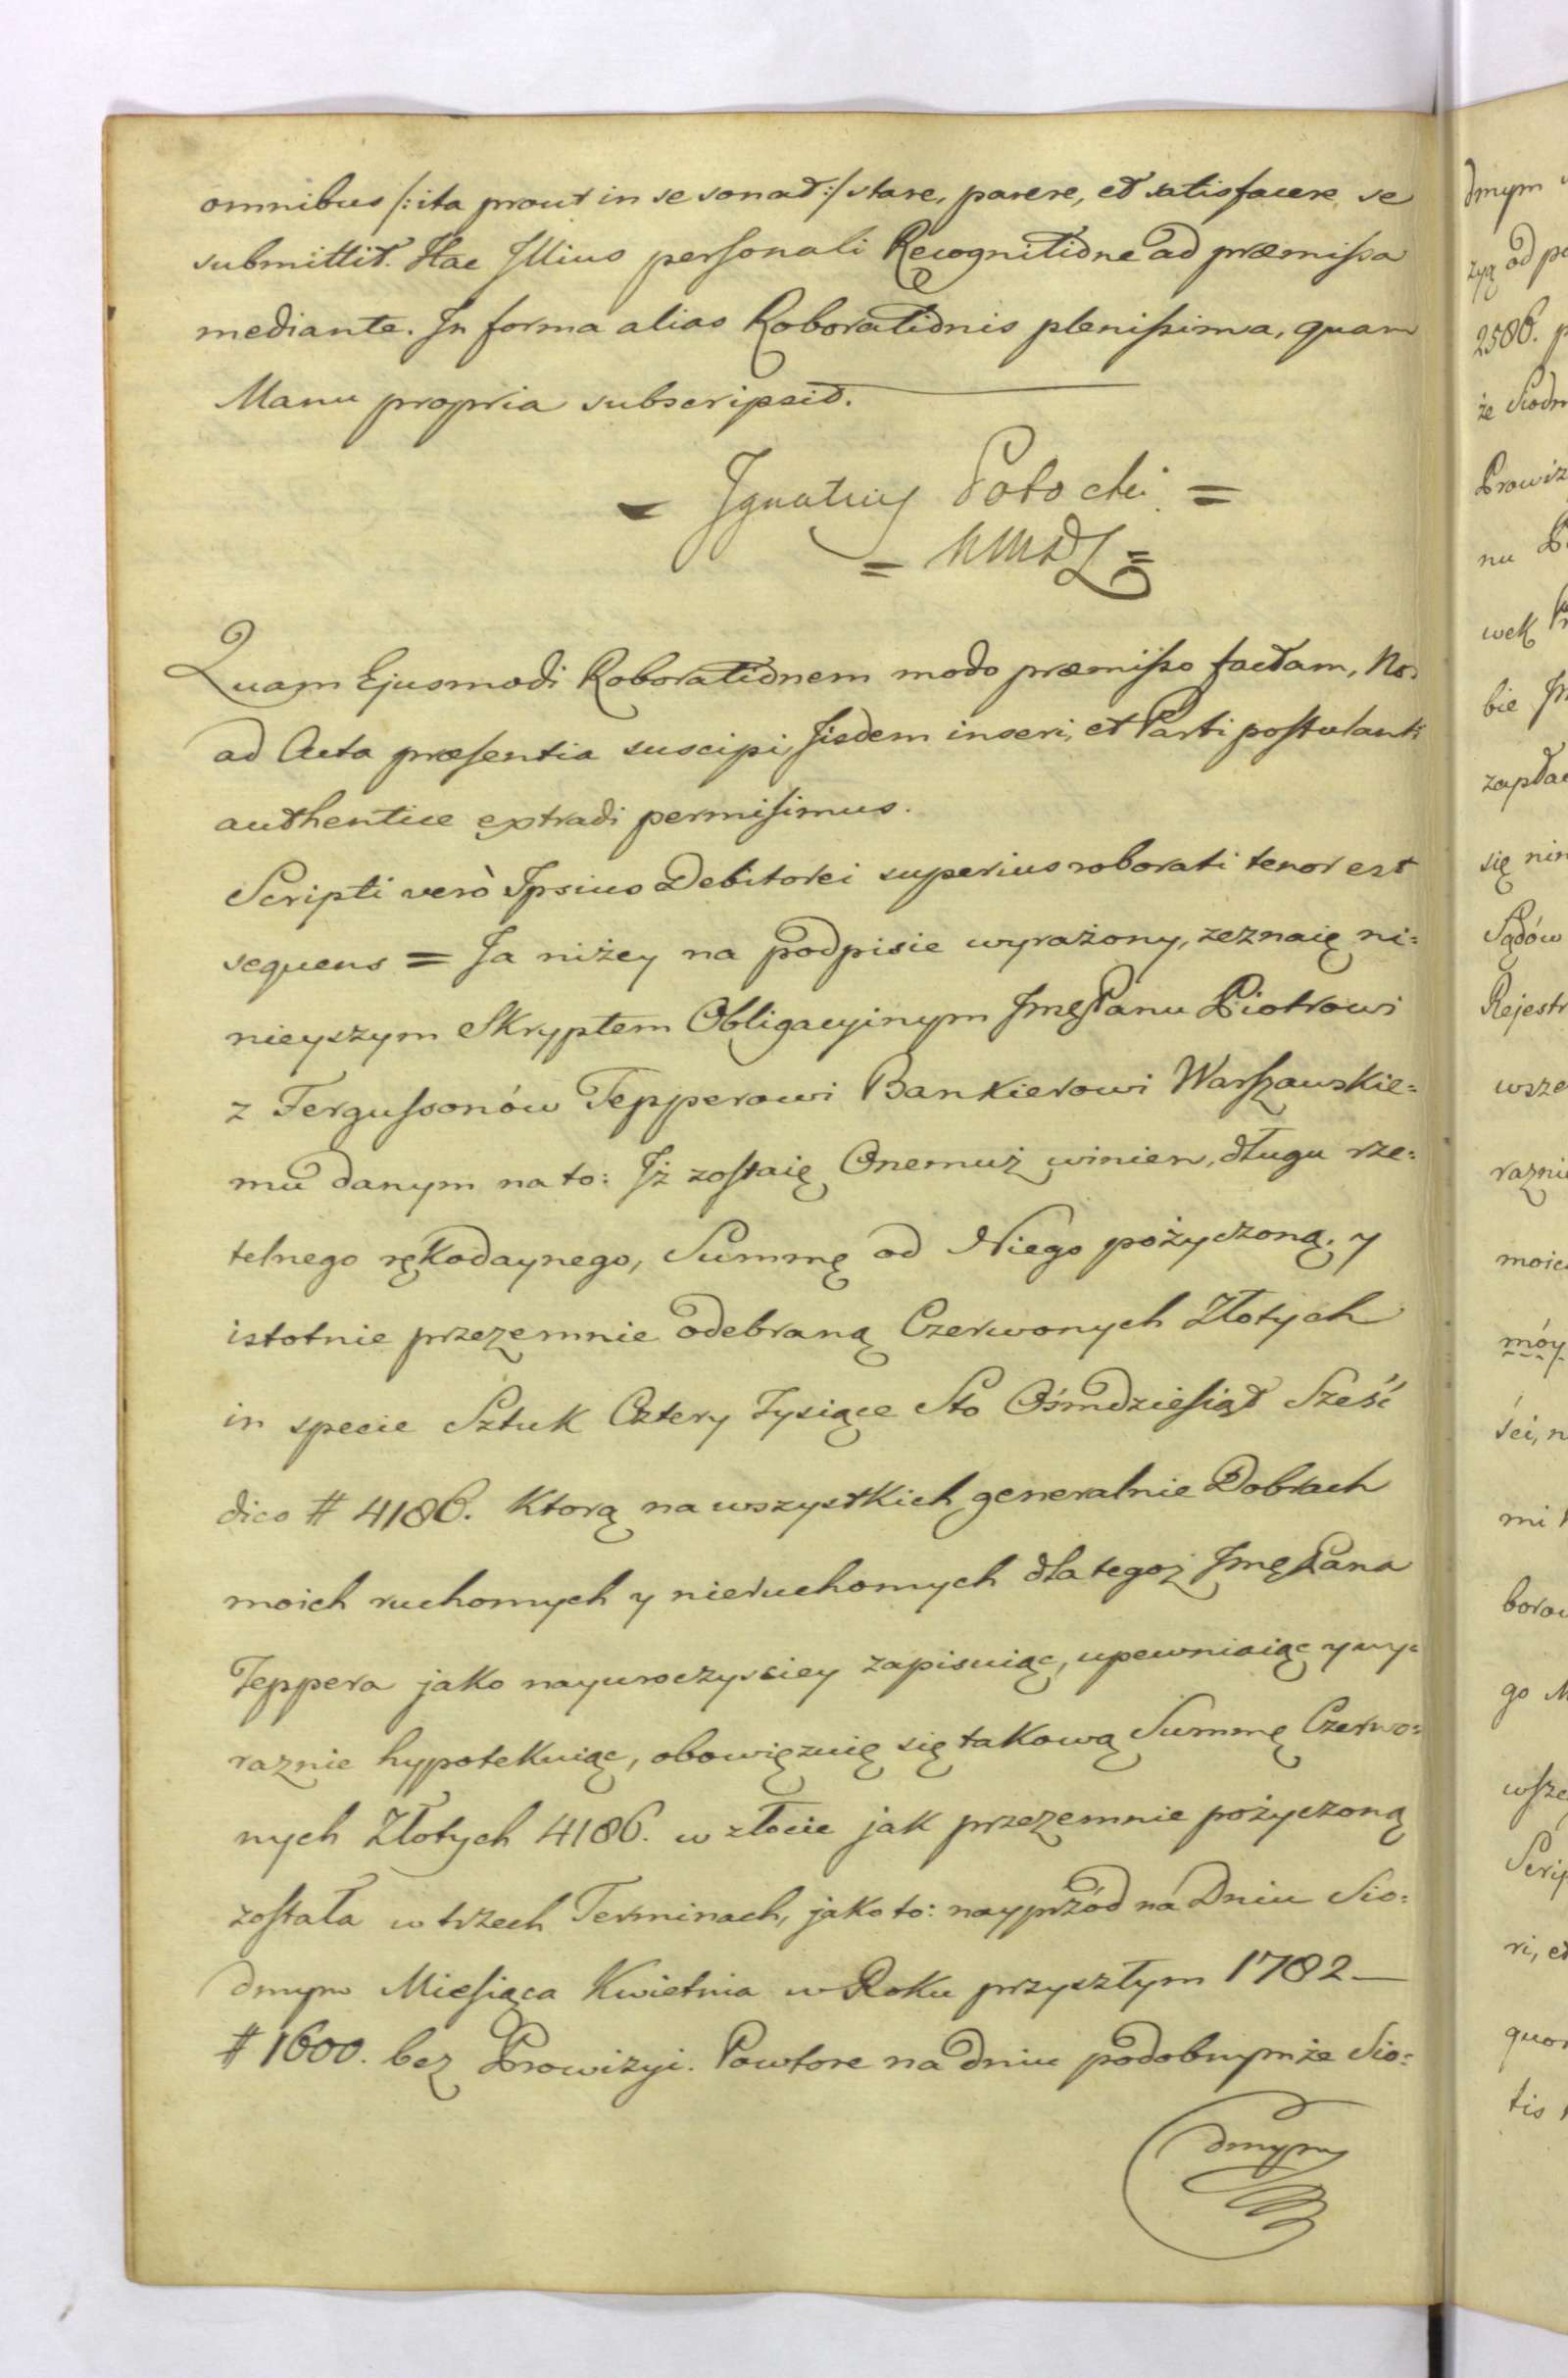 omnibus /: ita prout in se sonat :/ stare, parere, et satisfacere se
submittit. Hac Illius personali Recognitione ad præmissa
mediante. In forma alias Roborationis plenissima, quam
Manu propria subscripsit.
= Ignatius Potocki =
Quam Ejusmodi Roborationem modo præmisso factam, Nos
ad Acta præsentia suscipi, Iisdem inseri, et Parti postulanti
authentice extradi permisimus.
Scripti verò Ipsius Debitorei superius roborati tenor est
sequens = Ja niżey na podpisie wyrażony, zeznaię ni=
nieyszym Skryptem Obligacyinym Jmę Panu Piotrowi
z Fergussonów Tepperowi Bankierowi Warszawskie=
mu danym na to: Iż zostaię Onemuż winien, długu rze=
telnego rękodaynego, Summę od Niego pożyczoną, y
istotnie przezemnie odebraną Czerwonych Złotych
in specie Sztuk Cztery Tysiące Sto Ośmdziesiąt Sześć
dico # 4186. Ktorą na wszystkich generalnie Dobrach
moich ruchomych y nieruchomych dla tegoż Jmę Pana
Teppera jako nayuroczysciey zapisuiąc, upewniaiąc y wy=
raznie hypotekuiąc, obowięzuię się takową Summę Czerwo=
nych Złotych 4186. w złocie jak przezemnie pożyczoną
została w trzech Terminach, jako to: nayprzód na Dniu Sio=
dmym Miesiąca Kwietnia w Roku przyszłym 1782 —
# 1600. bez Prowizyi. Powtore na dniu podobnymże Sio=
dmym
dmym
zyą od
2586.
że Siodm
Prowiz
nu
wek
bie
zapłac
się nin
Sądów
Rejestr
wsze
raznie
moic
móy
ści, n
mi
borow
go M
wsze
Scrip
ri, et
quor
tis